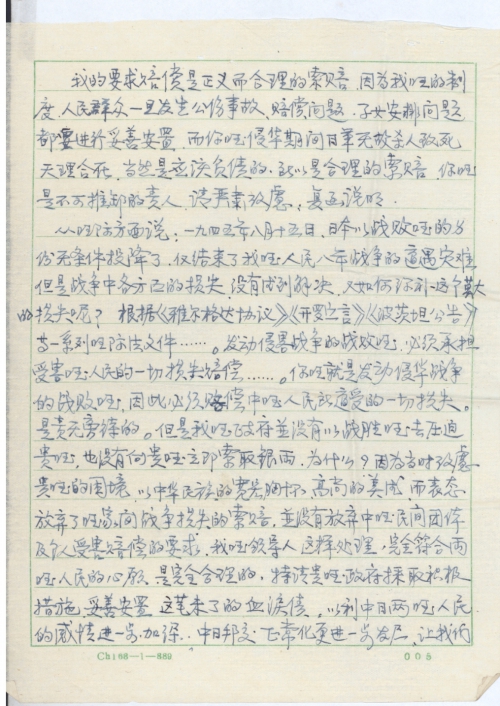 我的要求赔偿是正义而合理的索赔、因为我国的制
度、人民群众一旦发生公伤事故、赔偿问题、子女安排问题
都要进行妥善安置、而你国侵华期间日军无故杀人致死
天理合在、当然是应该负债的、所以是合理的索赔、你国
是不可推卸的责人、请严肃考虑、复函说明、
从国际方面说：一九四五年八月十五日、日本以战败国的身
份无条件投降了、仅结束了我国人民八年战争的遭遇灾难、
但是战争中各方面的损失、没有得到解决、又如何弥补这个莫大
的损失呢？根据《雅尔格达协议》《开罗之言》《波茨坦公告》
等一系列国际法文件……。发动侵害战争的战败国、必须承担
受害国人民的一切损失赔偿……。你国就是发动侵华战争
的战败国、因此必须赔偿中国人民所遭受的一切损失。
是责无旁贷的。但是我国政府並没有以战胜国去压迫
贵国、也没有向贵国立即索取银两、为什么？因为当时考虑
贵国的困境、以中华民族的宽大胸怀、高尚的美德而表态
放弃了国家间战争损失的索赔、並没有放弃中国民间团体
及个人受害赔偿的要求、我国领导人这样处理、完全符合两
国人民的心愿、是完全合理的、特请贵国政府採取积极
措施、妥善安置 这笔未了的血泪债、以利中日两国人民
的感情进一步加深、中日邦交正常化更进一步发展、让我们
Ch166-1-889
005